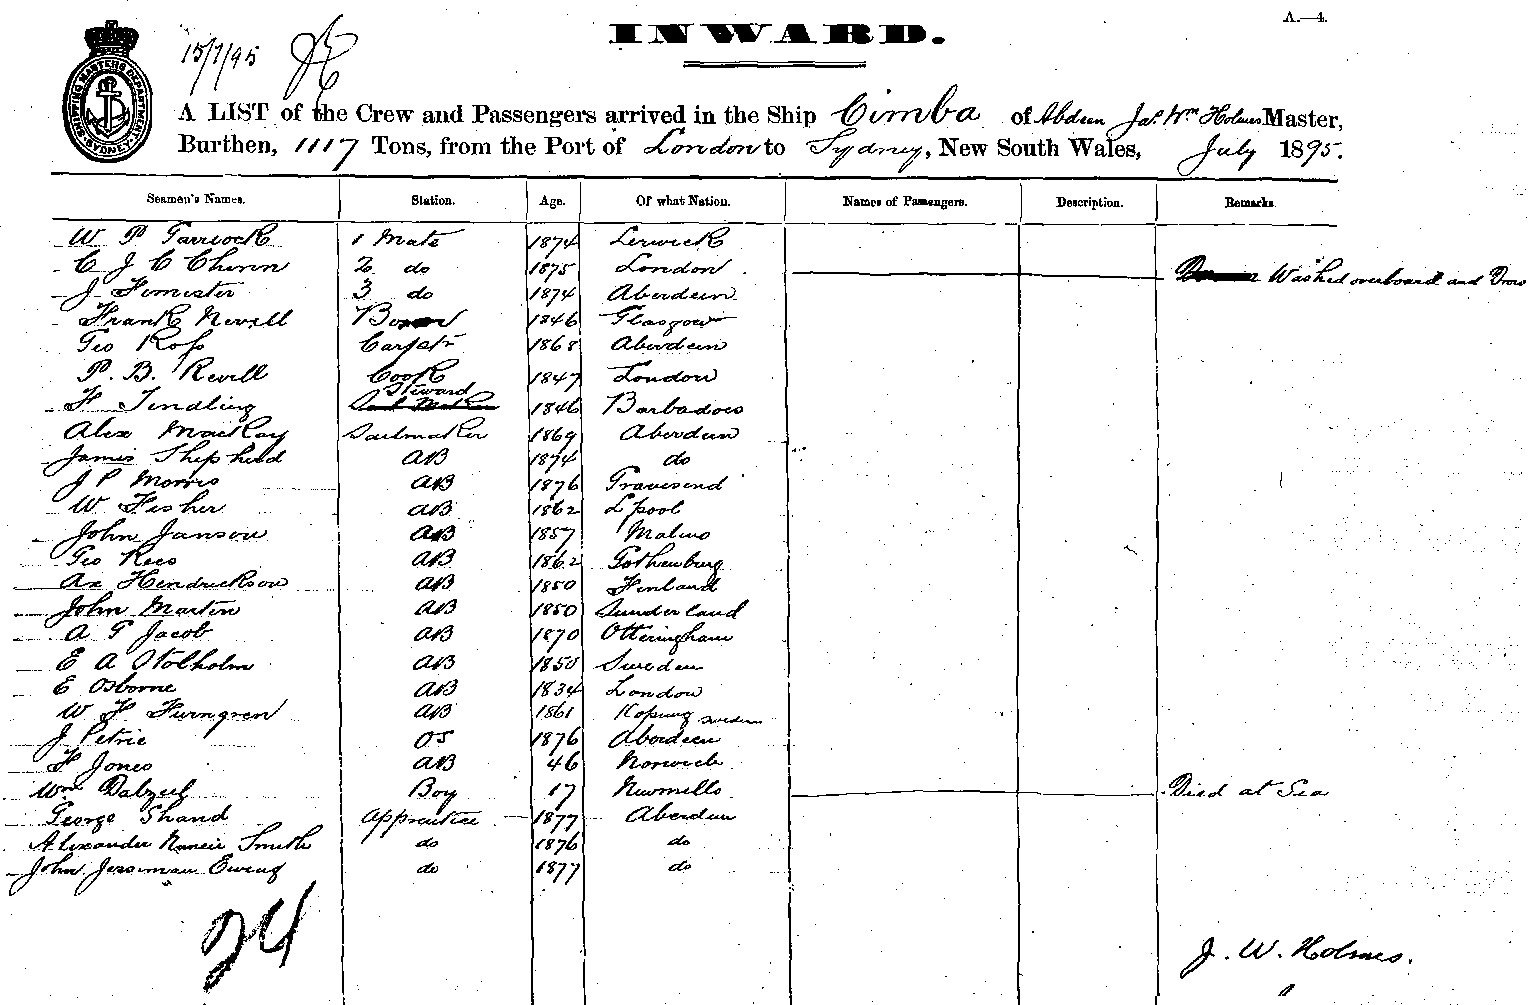 A.—4.
INWARD.
15/7/95
SHIPPING MASTERS DEPARTMENT SYDNEY
A LIST of the Crew and Passengers arrived in the Ship Cimba of Abdeen Jas. Wm Holmes Master,
Burthen, 1117 Tons, from the Port of London to Sydney, New South Wales, July 1895.
Seamen's Names. Station. Age. Of what Nation. Names of Passengers. Description. Remarks.
W P Tarrock 1 Mate 1874 Lerwick
C J C Chinn 2 do 1875 London Washed overboard and Drow
J Fimister 3 do 1874 Aberdeen
Frank Nevill 1846 Glasgow
Geo Ross Carpetr 1868 Aberdeen
P. B. Revill Cook 1847 London
F Tindling Steward 1846 Barbadoes
Alex MacKay Sailmaker 1869 Aberdeen
James Shepherd AB 1874 do
J P Morris AB 1876 Gravesend
W Fisher AB 1862 L'pool
John Janson AB 1857 Malmo
Geo Rees AB 1862 Gothenburg
Ax Hendrickson AB 1850 Finland
John Martin AB 1850 Sunderland
A G Jacob AB 1870 Otteringham
E A Stolholm AB 1850 Sweden
E Osborne AB 1834 London
W F Furngren AB 1861 Koping Sweden
J Petrie OS 1876 Aberdeen
F Jones AB 46 Norwich
Wm Dalzeel Boy 17 Newmills Died at Sea
George Shand Apprentice 1877 Aberdeen
Alexander Smith do 1876 do
John Jessiman Ewing do 1877 do
24
J. W. Holmes.